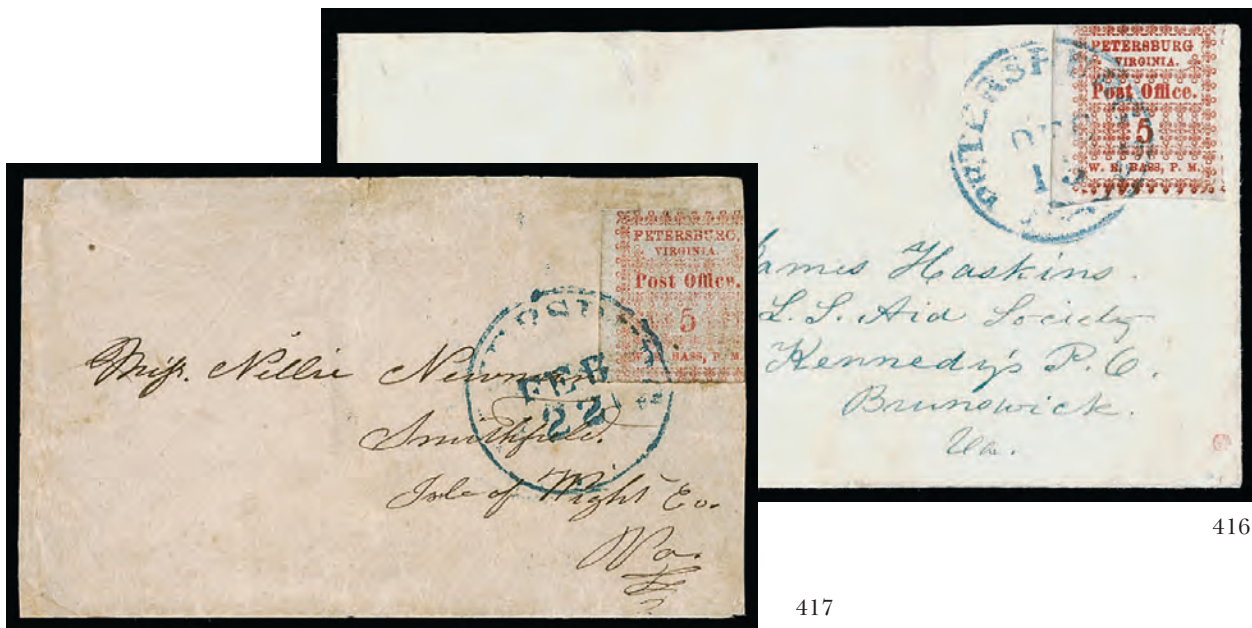 PETERSBURG
VIRGINIA.
Post Office.
5
W. E. BASS, P. M.
15
James Haskins.
L. S. Aid Society
Kennedy's P. O.
Brunswick.
Va.
416
PETERSBURG,
VIRGINIA.
Post Office.
5
W. E. BASS, P. M.
FEB
22
Miss. Nellie Newman
Smithfield.
Isle of Wight Co.
Va.
417